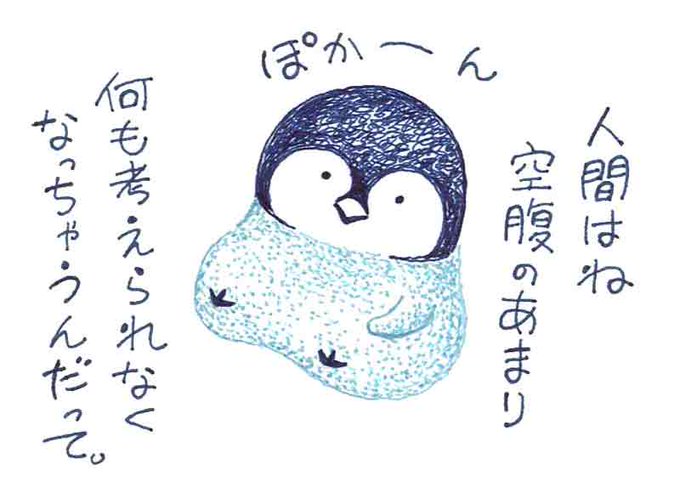 ぽかーん
人間はね
空腹のあまり
何も考えられなく
なっちゃうんだって。